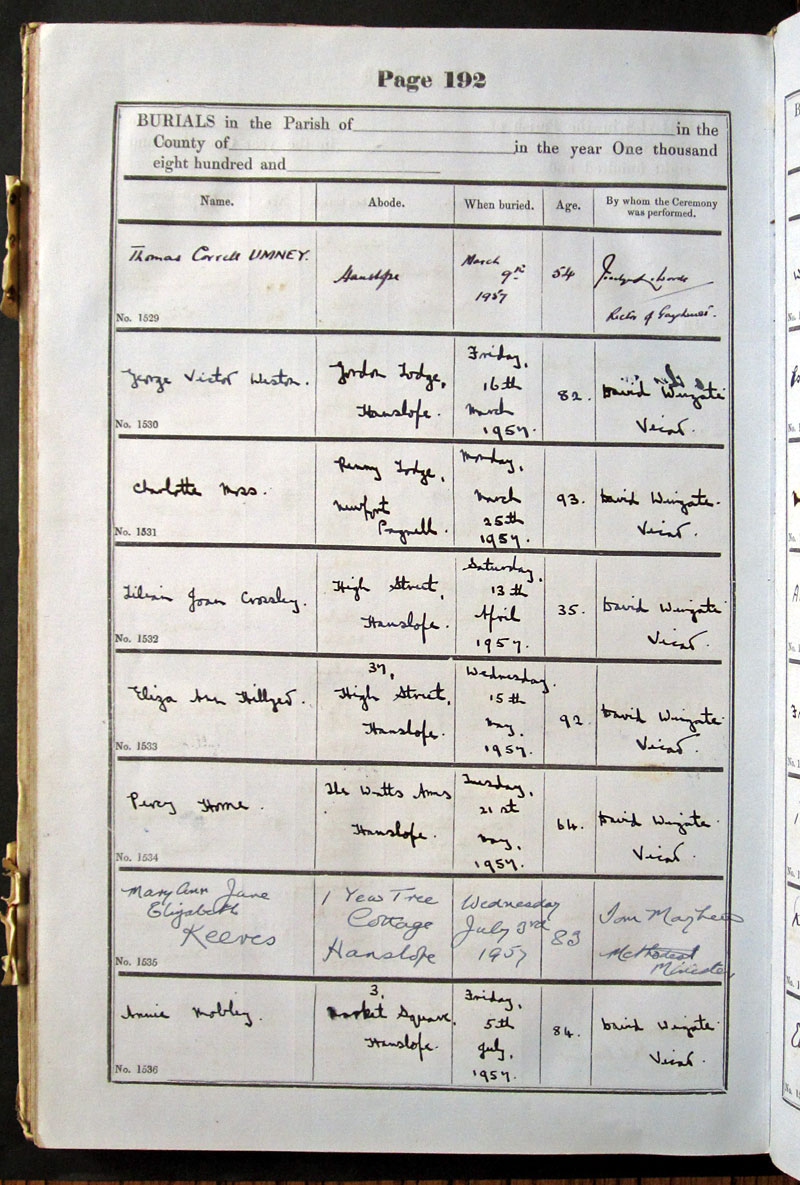 Page 192
BURIALS in the Parish of in the
County of in the year One thousand
eight hundred and
Name. Abode. When buried. Age. By whom the Ceremony was performed.
Thomas UMNEY.
Hanslope
March
9th
1957
54
Rector of Gayhurst.
No. 1529
George Victor Weston.
Gordon Lodge,
Hanslope.
Friday,
16th
March
1957.
82.
David Wingate
Vicar.
No. 1530
Charlotte Moss.
Renny Lodge,
Newport
Pagnell.
Monday,
March
25th
1957.
93.
David Wingate.
Vicar.
No. 1531
Lilian Joan Crossley.
High Street,
Hanslope.
Saturday,
13th
April
1957.
35.
David Wingate.
Vicar.
No. 1532
Eliza Ann Hillyer.
37,
High Street,
Hanslope.
Wednesday.
15th
May,
1957.
92.
David Wingate.
Vicar.
No. 1533
Percy Horne.
The Watts Arms
Hanslope.
Tuesday,
21st
May,
1957.
64.
David Wingate.
Vicar.
No. 1534
Mary Ann Jane
Elizabeth
Keeves
1 Yew Tree
Cottage
Hanslope
Wednesday
July 3rd
1957
83
Tom Mayhew
Methodist
Minister
No. 1535
Annie Mobley.
3,
Market Square,
Hanslope.
Friday,
5th
July,
1957.
84.
David Wingate.
Vicar.
No. 1536